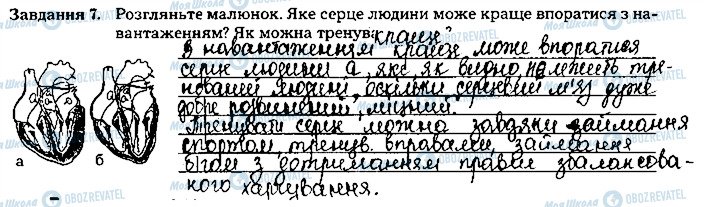 Завдання 7. Розгляньте малюнок. Яке серце людини може краще впоратися з на-
вантаженням? Як можна тренув. краще?
З навантаженням краще може впоратися
серце людини а, яке, як видно, належить тре-
нованій людині, оскільки серцевий м'яз дуже
добре розвинений, міцний.
Тренувати серце можна завдяки займання
спортом, тренув. вправами, займання
бігом з дотриманням правил збалансова-
ного харчування.
а б